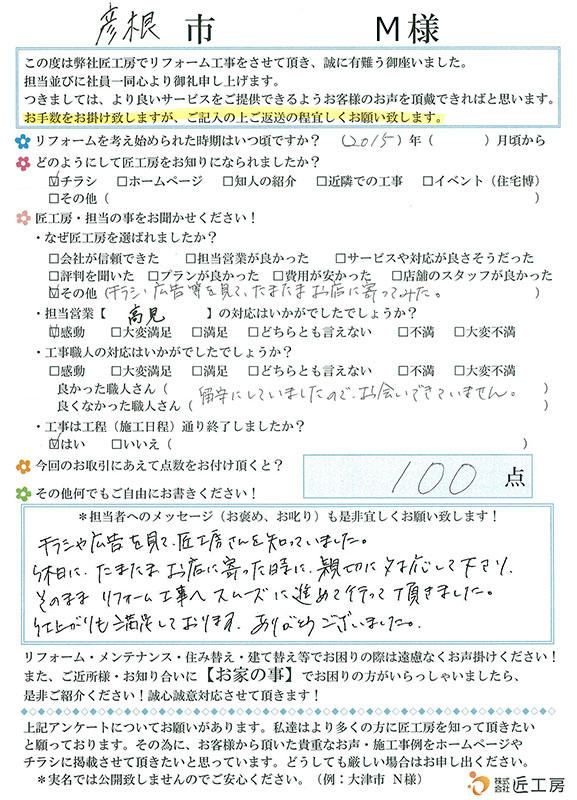 彦根 市 M様
この度は弊社匠工房でリフォーム工事をさせて頂き、誠に有難う御座いました。
担当並びに社員一同心より御礼申し上げます。
つきましては、より良いサービスをご提供できるようお客様のお声を頂戴できればと思います。
お手数をお掛け致しますが、ご記入の上ご返送の程宜しくお願い致します。
リフォームを考え始められた時期はいつ頃ですか？ (2015) 年 ( ) 月頃から
どのようにして匠工房をお知りになられましたか？
☑チラシ □ホームページ □知人の紹介 □近隣での工事 □イベント（住宅博）
□その他 ( )
匠工房・担当の事をお聞かせください！
・なぜ匠工房を選ばれましたか？
□会社が信頼できた □担当営業が良かった □サービスや対応が良さそうだった
□評判を聞いた □プランが良かった □費用が安かった □店舗のスタッフが良かった
☑その他 (チラシ・広告等を見て、たまたまお店に寄ってみた。 )
・担当営業【 高見 】の対応はいかがでしたでしょうか？
☑感動 □大変満足 □満足 □どちらとも言えない □不満 □大変不満
・工事職人の対応はいかがでしたでしょうか？
□感動 □大変満足 □満足 □どちらとも言えない □不満 □大変不満
良かった職人さん ( 留守にしていましたので、お会いできていません。 )
良くなかった職人さん ( )
・工事は工程（施工日程）通り終了しましたか？
☑はい □いいえ ( )
今回のお取引にあえて点数をお付け頂くと？ 100 点
その他何でもご自由にお書きください！
＊担当者へのメッセージ（お褒め、お叱り）も是非宜しくお願い致します！
チラシや広告を見て、匠工房さんを知っていました。
休日に、たまたまお店に寄った時に、親切に対応して下さり、
そのままリフォーム工事へスムーズに進めて行って頂きました。
仕上がりも満足しております。ありがとうございました。
リフォーム・メンテナンス・住み替え・建て替え等でお困りの際は遠慮なくお声掛けください！
また、ご近所様・お知り合いに【お家の事】でお困りの方がいらっしゃいましたら、
是非ご紹介ください！誠心誠意対応させて頂きます！
上記アンケートについてお願いがあります。私達はより多くの方に匠工房を知って頂きたい
と願っております。その為に、お客様から頂いた貴重なお声・施工事例をホームページや
チラシに掲載させて頂きたいと思っています。どうしても厳しい場合はお申し出ください。
＊実名では公開致しませんのでご安心ください。（例：大津市 N様）
株式会社 匠工房